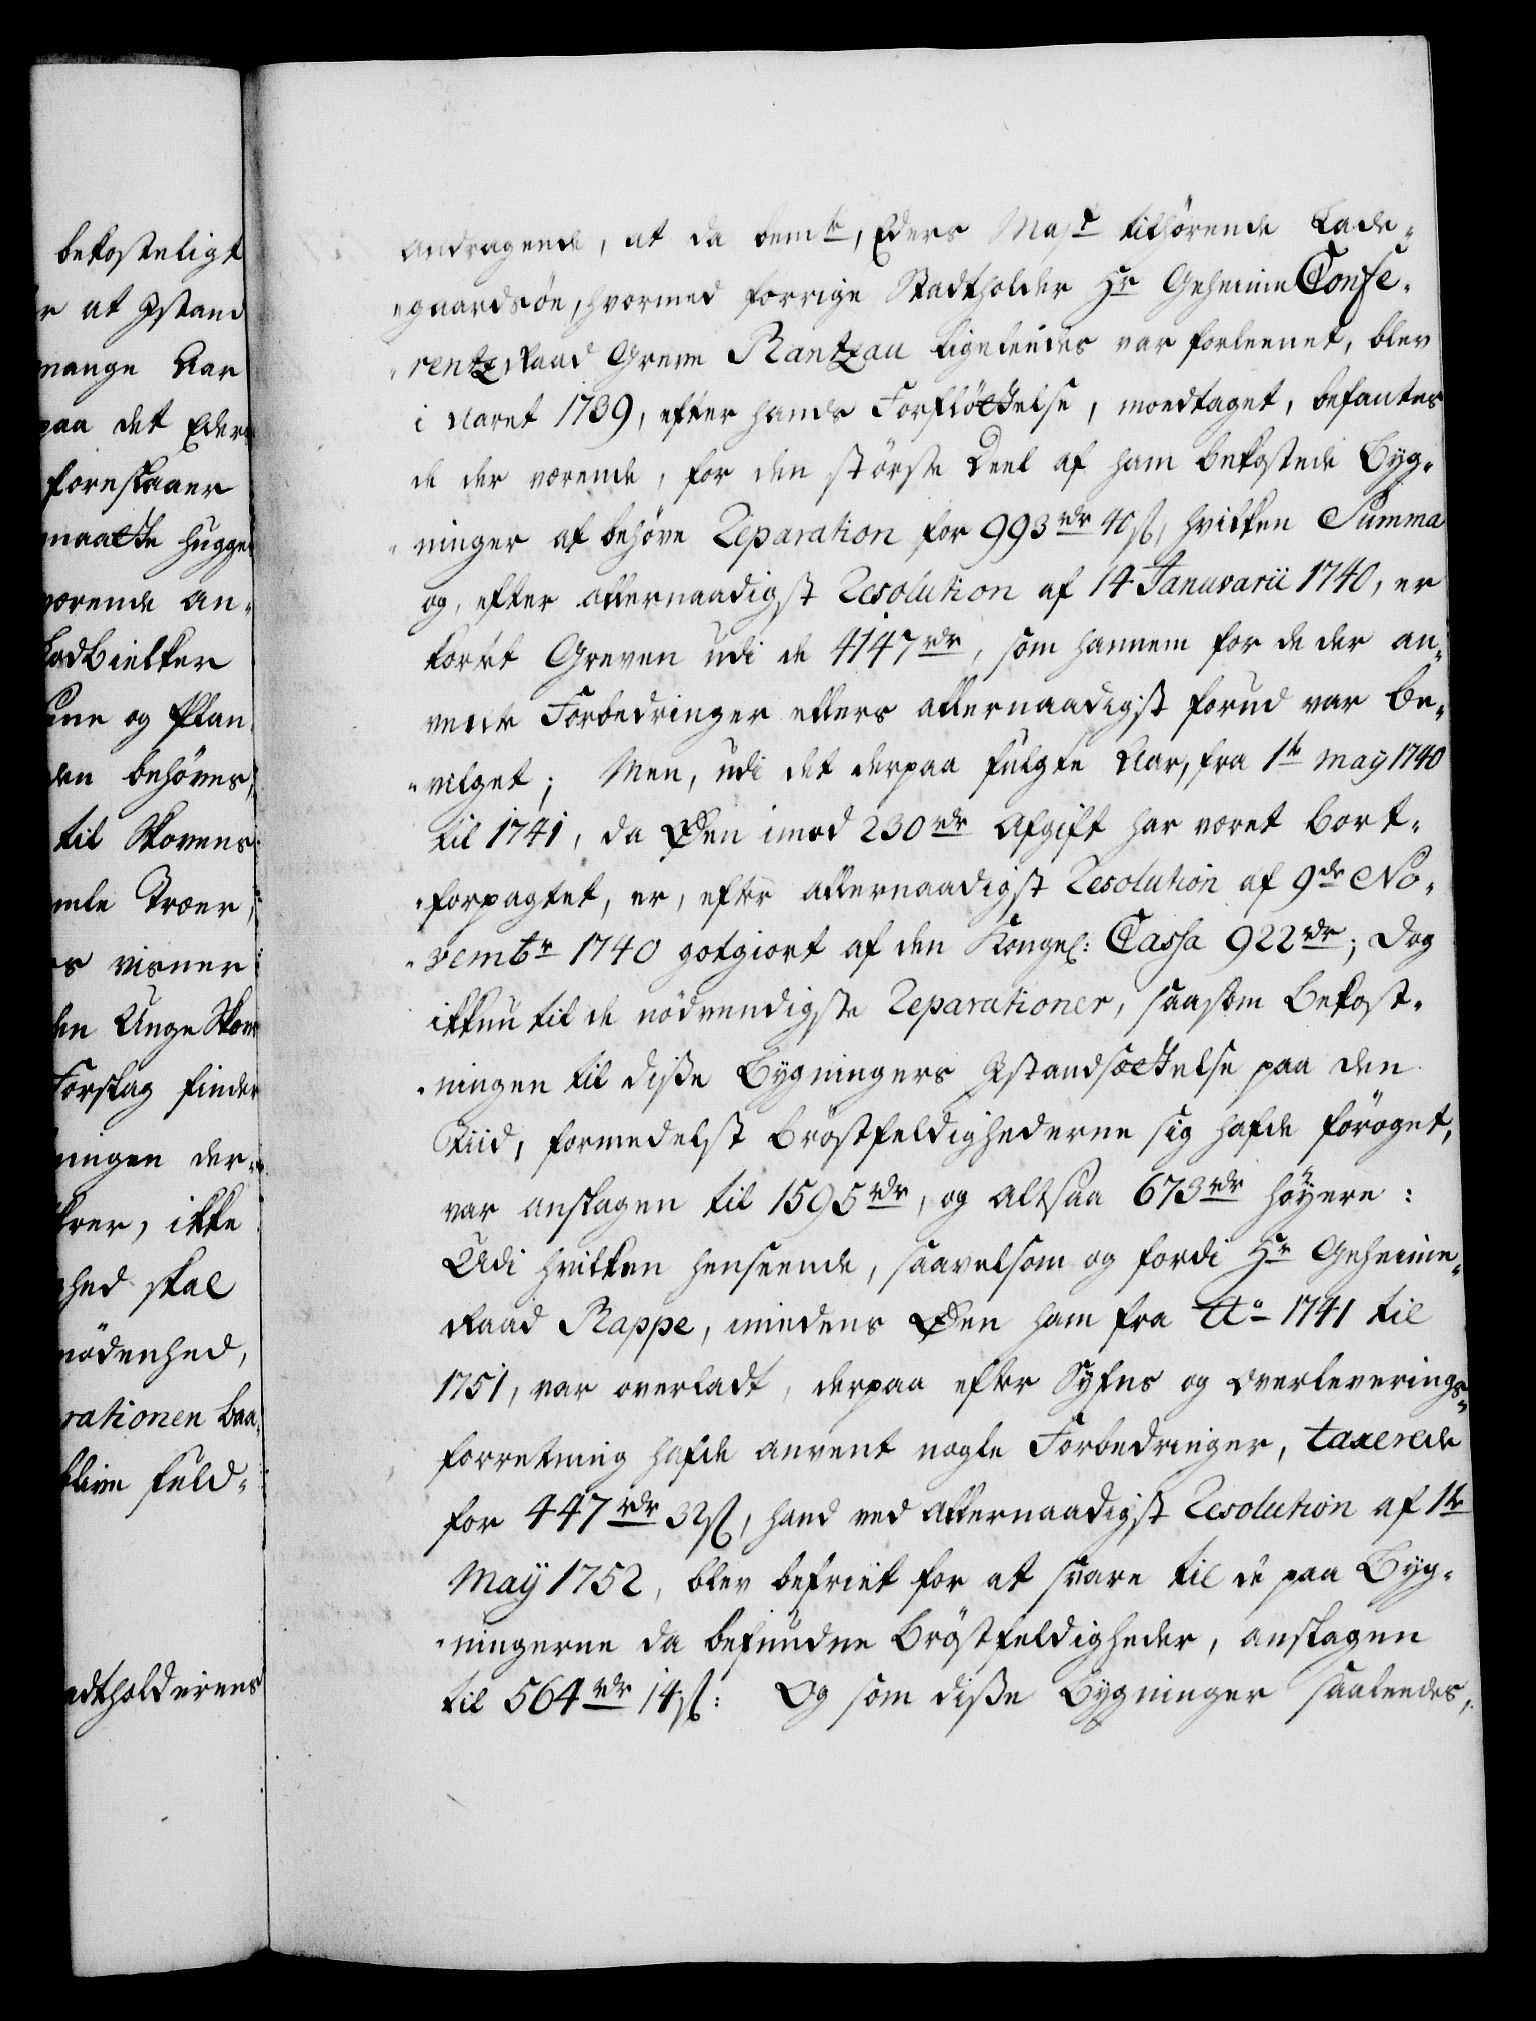 bekosteligt
r at Istand
mange Aar
paa det Eders
foreslaaer
maatte hugges
værende an-
Lodbielker
og Plan
den behöves,
til Skovens
mle Træer,
rs visner
den Unge Skov
Forslag finder
ningen der-
krer, ikke
hed skal
nödenhed,
rationen baa
blive fuld-
adtholderens
andragende, at da bemte, Eders Majt tilhörende Lade-
gaardsöe, hvormed forrige Stadtholder Hr Geheime Confe-
rentz Raad Greve Rantzau ligeleedes var forleenet, blev
i Aaret 1739, efter hands Forflöttelse, modtaget, befantes
de der værende, for den störste Deel af ham bekostede Byg-
ninger at behöve Reparation for 993 rdr 40 s, hvilken Summa
og, efter allernaadigst Resolution af 14 Januarii 1740, er
kortet Greven udi de 4147 rdr, som hannem for de der an-
vente Forbedringer ellers allernaadigst forud var be-
vilget; Men, udi det derpaa fulgte Aar, fra 1te may 1740
til 1741, da Öen imod 230 rdr Afgift har været bort-
forpagtet, er, efter allernaadigst Resolution af 9de No-
vembr 1740 gotgiort af den Kongel: Cassa 922 rdr; dog
ikkun til de nödvendigste Reparationer, saasom Bekost-
ningen til disse Bygningers Istandsættelse paa den
Tiid, formedelst Bröstfeldighederne sig hafde foröget,
var anslagen til 1595 rdr, og altsaa 673 rdr höyere:
Udi hvilken henseende, saavelsom og fordi Hr Geheime-
Raad Rappe, imedens Öen ham fra Ao 1741 til
1751, var overladt, derpaa efter Syfns og Overleverings-
forretning hafde anvent nogle Forbedringer, taxerede
for 447 rdr 32 s, hand ved Allernaadigst Resolution af 1te
May 1752, blev befriet for at svare til de paa Byg-
ningerne da befundne Bröstfeldigheder, anslagen
til 564 rdr 14 s: Og som disse Bygninger saaleedes,